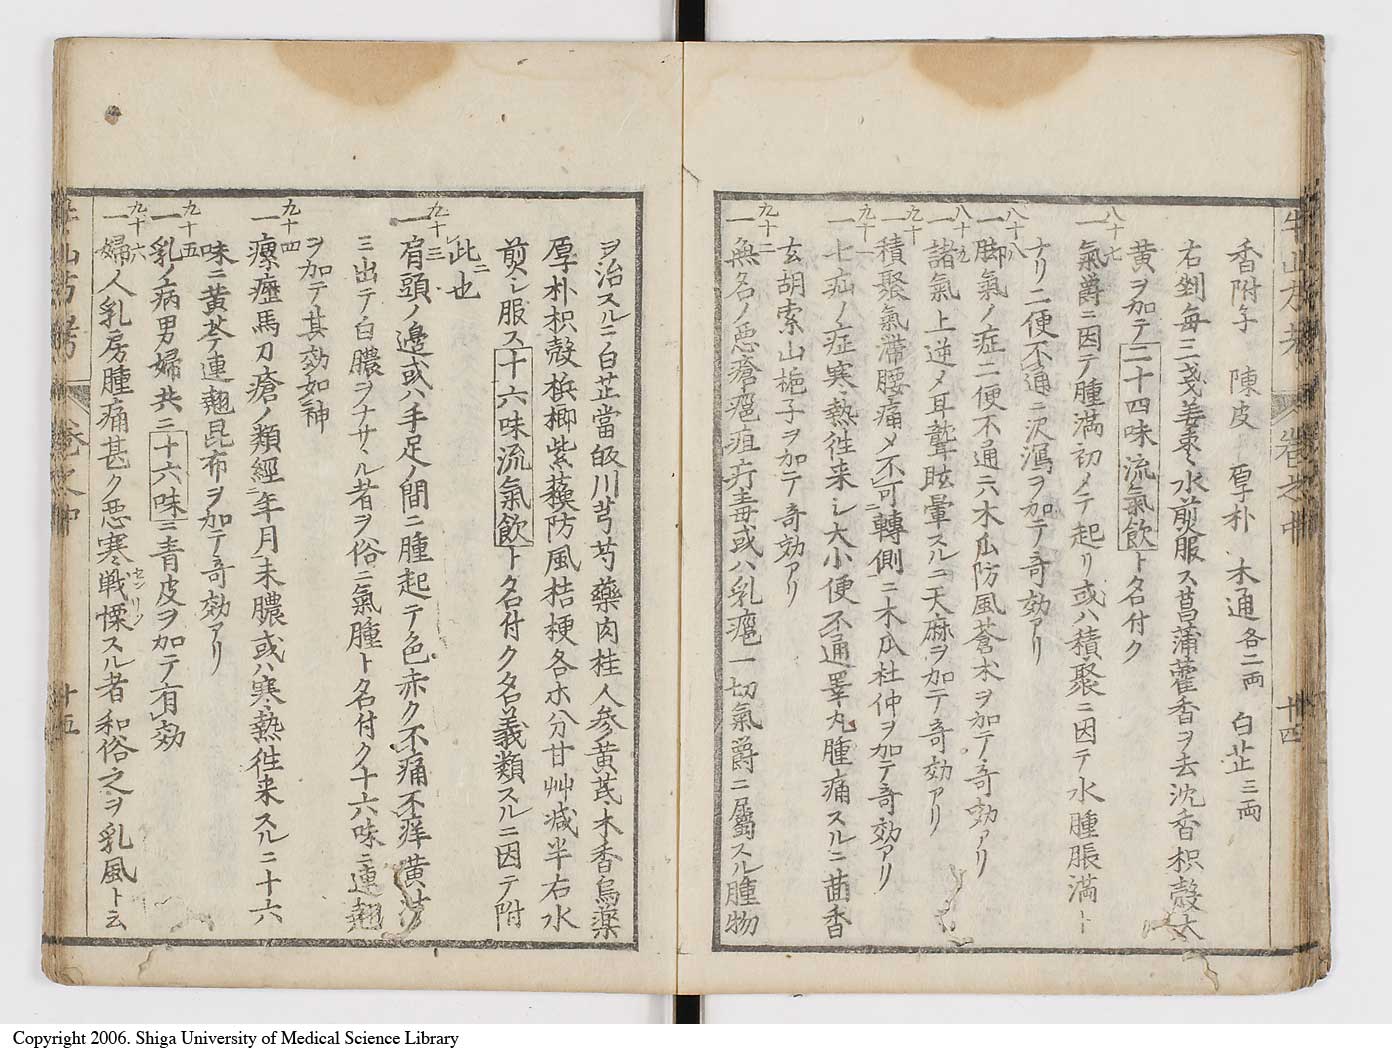 牛山方考 卷之中 十四
香附子 陳皮 厚朴 木通各二両 白芷三両
右剉毎三戔姜棗水煎服ス菖蒲藿香ヲ去沈香枳殻大
黄ヲ加テ二十四味流氣飲ト名付ク
八十七
一氣爵ニ因テ腫満初メテ起リ或ハ積聚ニ因テ水腫脹満ト
ナリ二便不通ニ沢瀉ヲ加テ奇効アリ
八十八
一脚氣ノ症二便不通ニ木瓜防風蒼朮ヲ加テ奇効アリ
八十九
一諸氣上逆メ耳聾眩暈スルニ天麻ヲ加テ奇効アリ
九十
一積聚氣滞腰痛メ不可轉側ニ木瓜杜仲ヲ加テ奇効アリ
九十一
一七疝ノ症寒熱徃来シ大小便不通睾丸腫痛スルニ茴香
玄胡索山梔子ヲ加テ奇効アリ
九十二
一無名ノ悪瘡癰疽疔毒或ハ乳癰一切氣爵ニ屬スル腫物
ヲ治スルニ白芷當皈川芎芍藥肉桂人参黄芪木香烏薬
厚朴枳殻梹榔紫蘓防風桔梗各ホ分甘艸減半右水
煎シ服ス十六味流氣飲ト名付ク名義類スルニ因テ附
此ニ也
九十三
一肩頭ノ邊或ハ手足ノ間ニ腫起テ色赤ク不痛不痒黄汁
三出テ白膿ヲナサヾル者ヲ俗ニ氣腫ト名付ク十六味ニ連翹
ヲ加テ其効如神
九十四
一瘰癧馬刀瘡ノ類經年月未膿或ハ寒熱徃来スルニ十六
味ニ黄芩連翹昆布ヲ加テ奇効アリ
九十五
一乳ノ病男婦共ニ十六味ニ青皮ヲ加テ有効
九十六
一婦人乳房腫痛甚ク悪寒戦慄スル者和俗之ヲ乳風ト云
センリツ
牛山方考 卷之中 十五
Copyright 2006. Shiga University of Medical Science Library